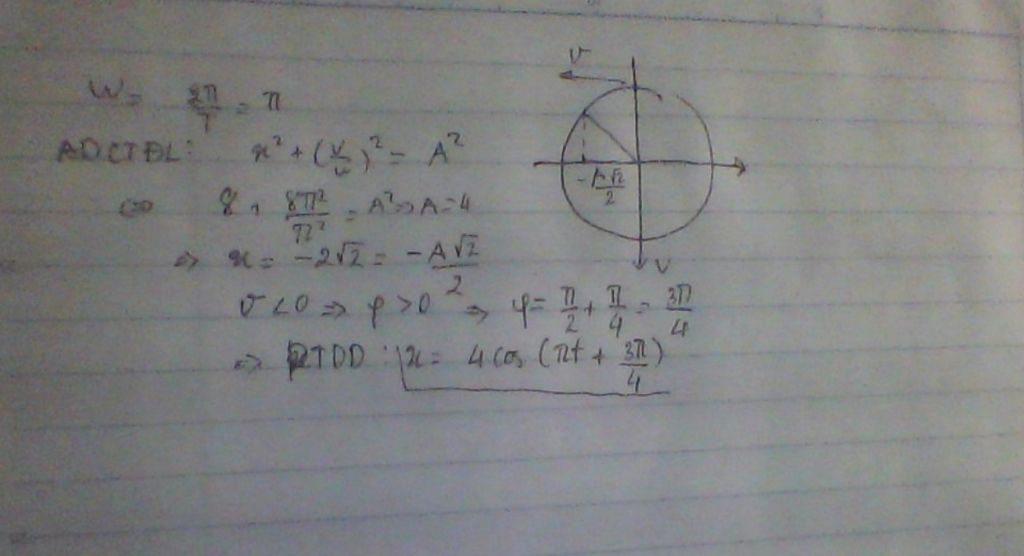 W = 2π/T = π
ADCTĐL: x² + (v/ω)² = A²
<=> 8 + 8π²/π² = A² => A = 4
=> x = -2√2 = -A√2/2
v < 0 => φ > 0 => φ = π/2 + π/4 = 3π/4
=> PTDD: x = 4 cos (πt + 3π/4)
v
-A√2/2
v